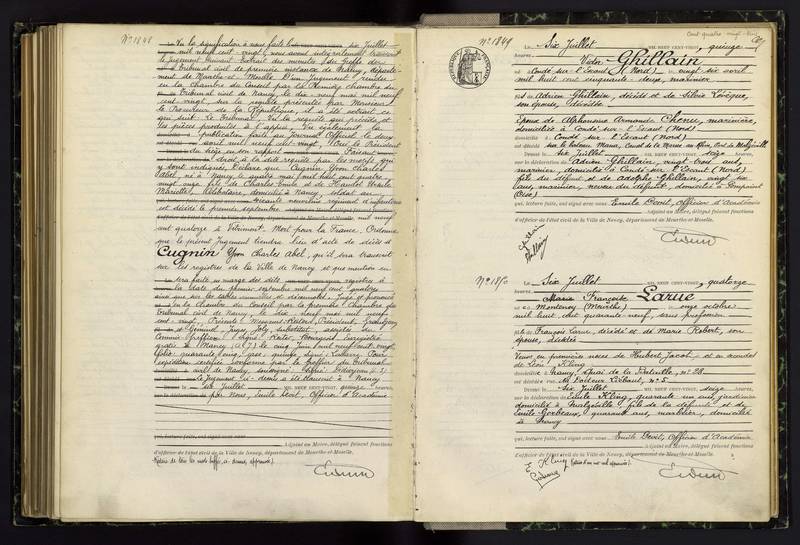 N° 1848
Vu la signification à nous faite le six Juillet
mil neuf cent vingt, nous avons intégralement transcrit
le Jugement suivant: Extrait des minutes du Greffe du
Tribunal civil de première instance de Nancy, départe-
ment de Meurthe et Moselle. D'un Jugement rendu
en la Chambre du Conseil par la Première Chambre du
Tribunal civil de Nancy, le dix neuf mai mil neuf
cent vingt, sur la requête présentée par Monsieur
le Procureur de la République, il a été extrait ce
qui suit: Le Tribunal. Vu la requête qui précède et
les pièces produites à l'appui. Vu également la
publication faite au Journal Officiel le douze
avril mil neuf cent vingt. Ouï le Président
du siège en son rapport. Faisant
droit à la dite requête par les motifs qui
y sont indiqués, Déclare que Cugnin Yvon Charles
Abel, né à Nancy le quatre mai mil huit cent quatre-
vingt onze, fils de Charles Emile et de
célibataire, domicilié à Nancy, soldat au
régiment d'infanterie
est décédé le premier septembre mil neuf
cent quatorze à Vitrimont. Mort pour la France. Ordonne
que le présent Jugement tiendra lieu d'acte de décès à
Cugnin Yvon Charles Abel, qu'il sera transcrit
sur les registres de la Ville de Nancy et que mention en
sera faite en marge des dits registres à
la date du premier septembre mil neuf cent quatorze
ainsi que sur les tables annuelles et décennales. Jugé et prononcé
en la Chambre du Conseil par la première Chambre du
Tribunal civil de Nancy, le dix neuf mai mil neuf
cent vingt. Présents: Messieurs Président,
Juges, Joly, substitut, assistés de
Commis-Greffier. Signé: Enregistré
gratis à Nancy (A.J.) le cinq Juin mil neuf cent vingt,
folio quarante cinq, case quinze, signé: Pour
expédition certifiée conforme par le Greffier du Tribunal
civil de Nancy, soussigné. Signé:
le Jugement ci-dessus a été transcrit à Nancy
le six Juillet MIL NEUF CENT VINGT, quinze heures,
par nous, Emile Devit, Officier d'Académie
qui, lecture faite, ont signé avec nous
Adjoint au Maire, délégué faisant fonctions
d'officier de l'état civil de la Ville de Nancy, département de Meurthe-et-Moselle.
Cent quatre vingt-cinq
N° 1849
Le Six Juillet MIL NEUF CENT VINGT, quinze
heures, Victor Ghillain
né à Condé-sur-l'Escaut (Nord), le vingt six avril
mil huit cent cinquante deux, marinier
fils de Adrien Ghillain, décédé et de Silvie Levêque,
son épouse, décédée
Époux de Alphonsine Armande Chenu, marinière,
domiciliée à Condé-sur-l'Escaut (Nord)
domicilié à Condé-sur-l'Escaut (Nord)
est décédé sur le bateau Canal de la Marne au Rhin, Port de Malzéville
Dressé le six Juillet MIL NEUF CENT VINGT, seize heures,
sur la déclaration de Adrien Ghillain, vingt trois ans,
marinier, domicilié à Condé-sur-l'Escaut (Nord)
fils du défunt et de Adolphe Ghillain, vingt six
ans, marinier, neveu du défunt, domicilié à Longueil
(Oise)
qui, lecture faite, ont signé avec nous Emile Devit, Officier d'Académie
Adjoint au Maire, délégué faisant fonctions
d'officier de l'état civil de la Ville de Nancy, département de Meurthe-et-Moselle.
Ghillain
Ghillain
N° 1850
Le Six Juillet MIL NEUF CENT VINGT, quatorze
heures, Marie Françoise Larue
née à Montenoy (Meurthe) le onze octobre
mil huit cent quarante neuf, sans profession
fille de François Larue, décédé et de Marie Robert, son
épouse, décédée
Veuve en premières noces de Hubert Jacob, et en secondes
de Léon Kling
domiciliée à Nancy, Quai de la Bataille, n° 28
est décédée rue n° 5
Dressé le six Juillet MIL NEUF CENT VINGT, seize heures,
sur la déclaration de Emile Kling, quarante un ans, jardinier
domicilié à Malzéville, fils de la défunte et de
Emile Gorbeaux, quarante ans, marbrier, domicilié
à Nancy
qui, lecture faite, ont signé avec nous Emile Devit, Officier d'Académie
Adjoint au Maire, délégué faisant fonctions
d'officier de l'état civil de la Ville de Nancy, département de Meurthe-et-Moselle.
E Kling